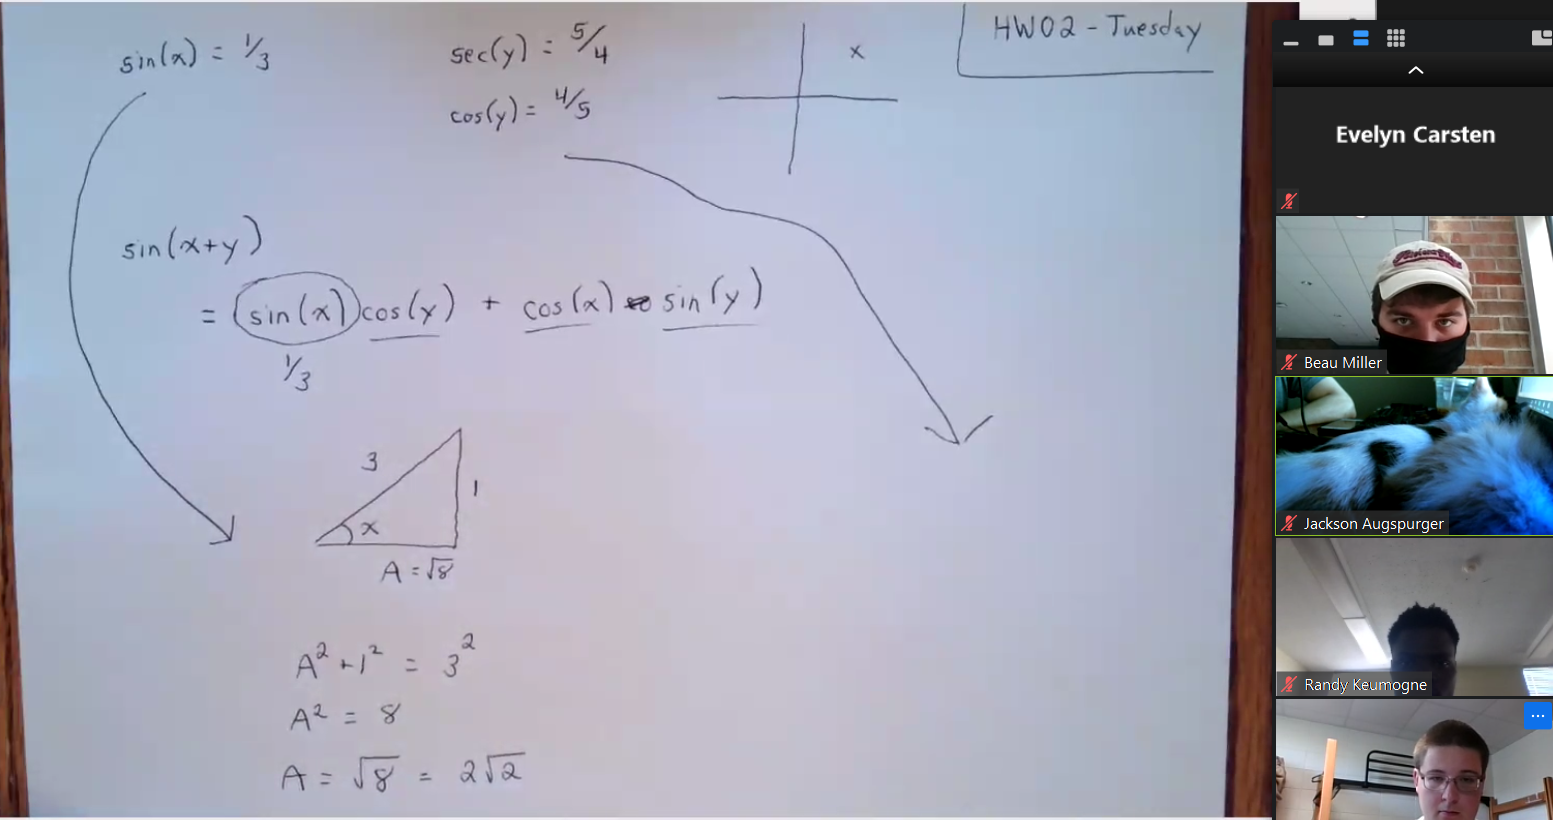 sin(x) = 1/3
sec(y) = 5/4
cos(y) = 4/5
x
HW02 - Tuesday
sin(x+y)
= sin(x) cos(y) + cos(x) sin(y)
1/3
3
1
x
A = √8
A² + 1² = 3²
A² = 8
A = √8 = 2√2
Evelyn Carsten
Beau Miller
Jackson Augspurger
Randy Keumogne